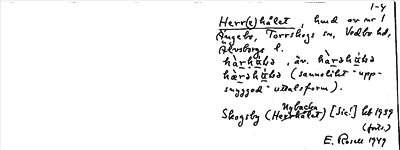 1-4
Herr(e)hålet, hmd av nr 1
Ängebo, Torrskogs sn, Vedbo hd,
Älvsborgs l.
hà̀rhå̀lə, äv. hà̀rəhå̀lə
hæ̀rəhå̀lə (sannolikt "upp-
snyggad" uttalsform).
Nybacka
Skogsby (Herrhålet) [Sic!] kt 1939
(forts.)
E. Rosell 1949